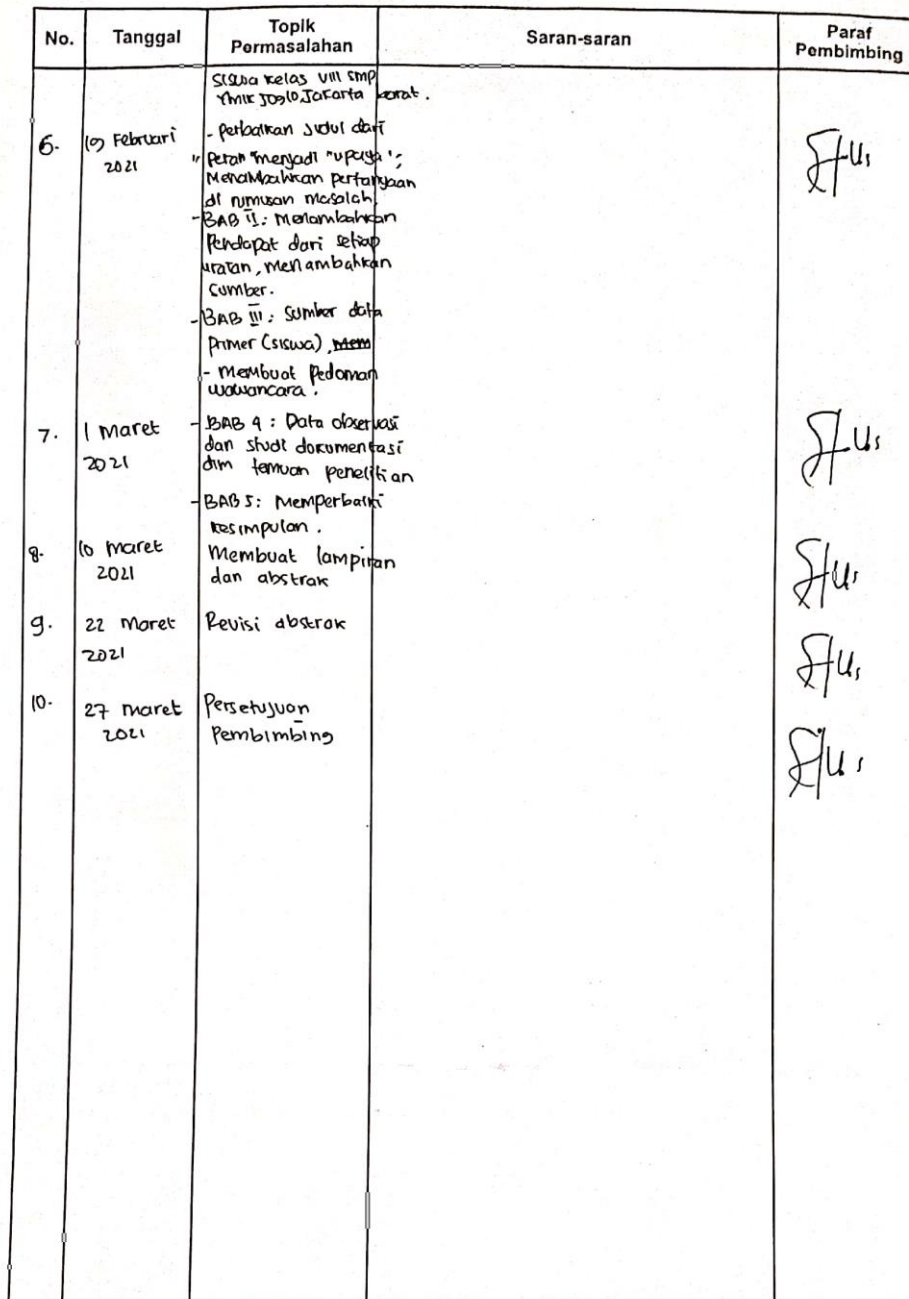 No. Tanggal Topik Permasalahan Saran-saran Paraf Pembimbing
siswa kelas VIII SMP
YMIK Joglo, Jakarta barat.
6. 19 Februari 2021
- perbaikan judul dari
"peran" menjadi "upaya";
Menambahkan pertanyaan
di rumusan masalah
- BAB II: Menambahkan
Pendapat dari setiap
uraian, menambahkan
sumber.
- BAB III: Sumber data
primer (siswa), Mem
- membuat Pedoman
wawancara.
7. 1 Maret 2021
- BAB 4: Data observasi
dan studi dokumentasi
dlm temuan penelitian
- BAB 5: Memperbaiki
kesimpulan.
8. 10 Maret 2021
Membuat lampiran
dan abstrak
9. 22 Maret 2021
Revisi abstrak
10. 27 Maret 2021
Persetujuan
Pembimbing